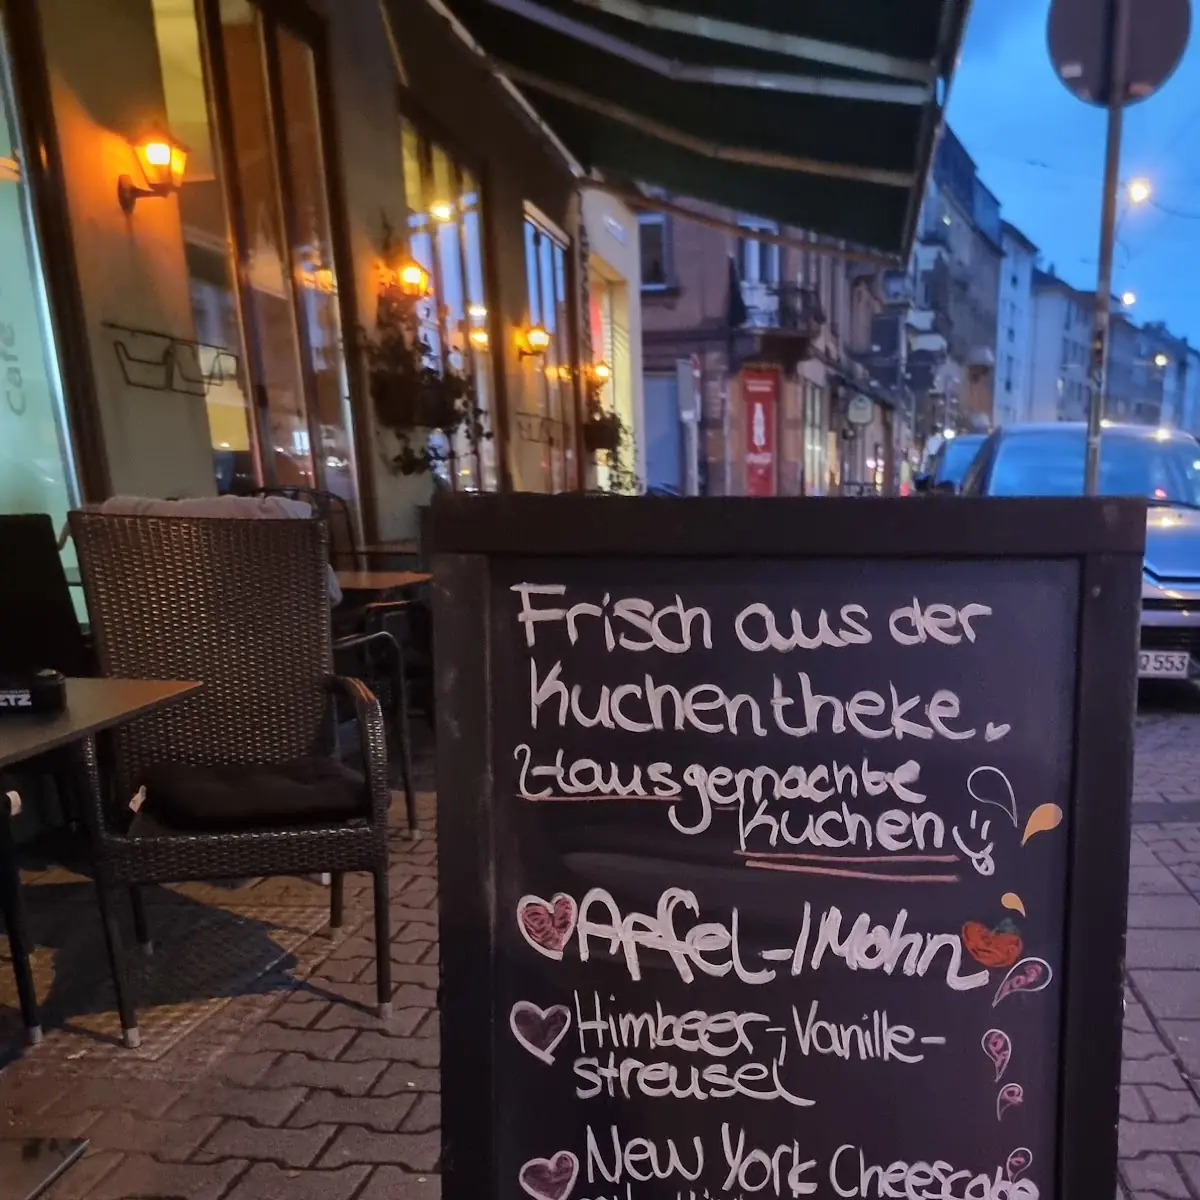 Frisch aus der
Kuchentheke
Hausgemachte
Kuchen
Apfel-/Mohn
Himbeer-, Vanille-
streusel
New York Cheesecake
Café
ETZ
Q 553